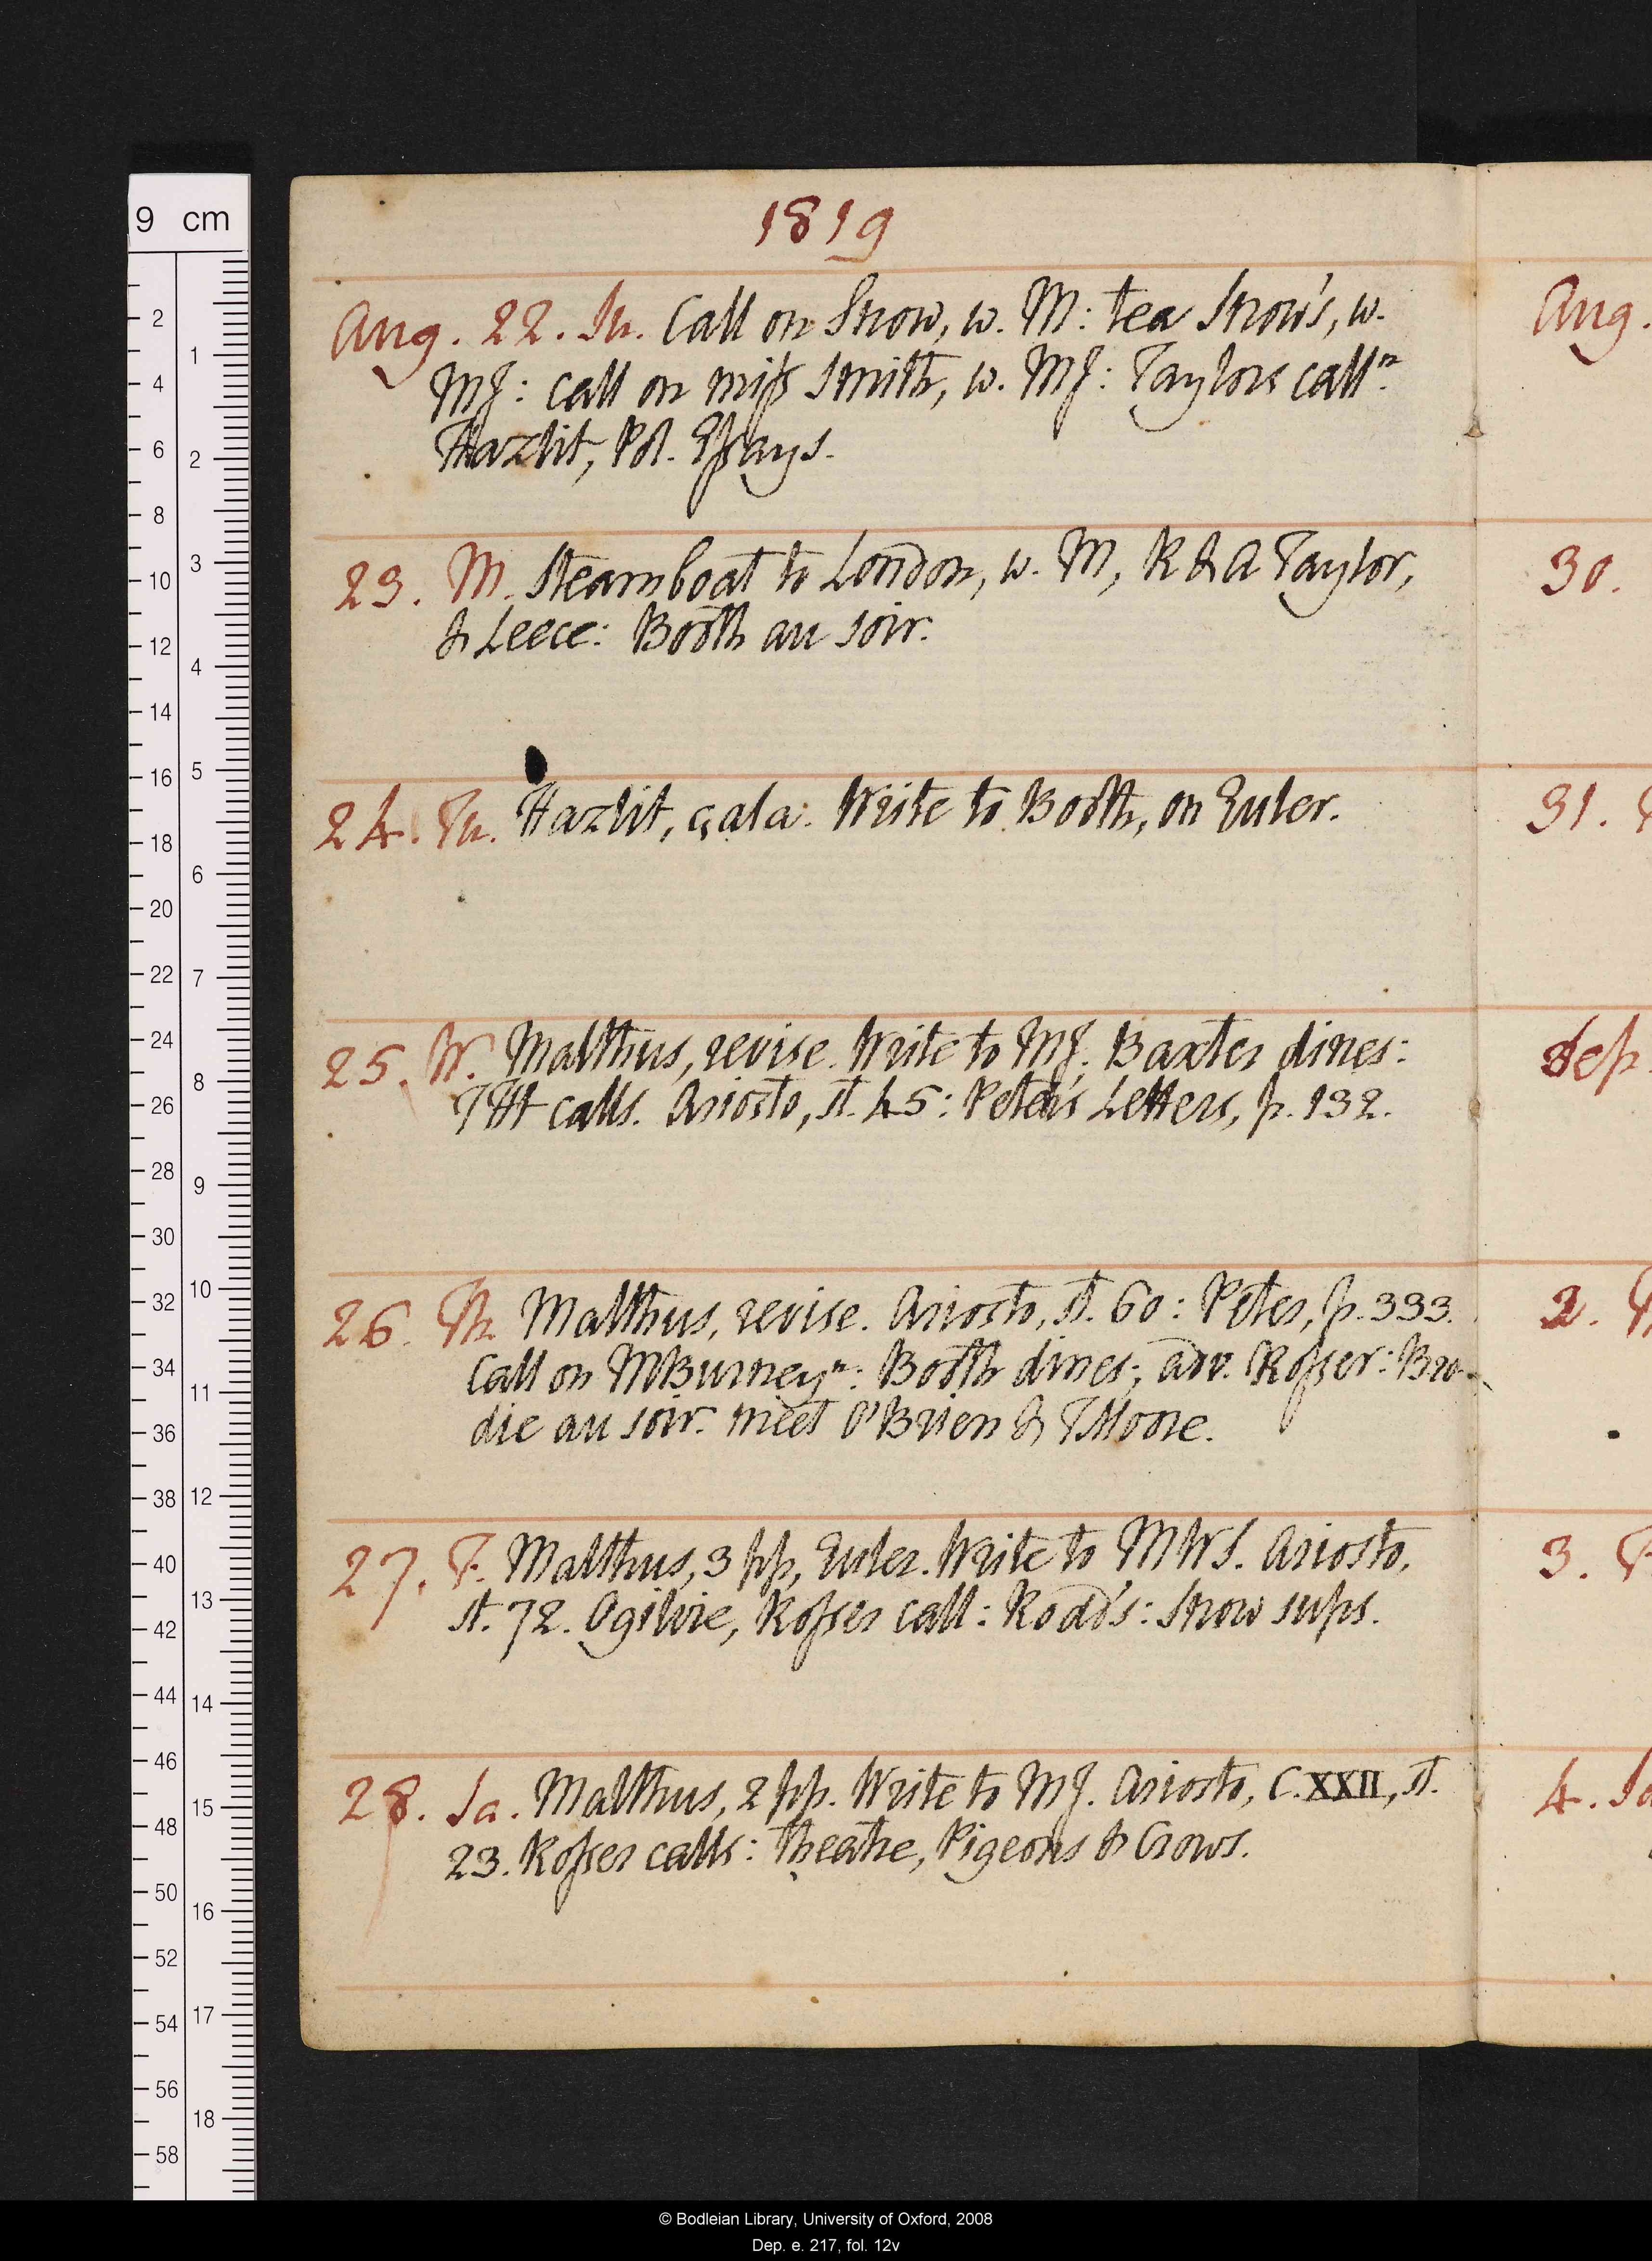 1819
Aug. 22. Su. Call on Snow, w. M: tea Snow's, w.
MJ: call on miss Smith, w. MJ: Taylors calln.
Hazlit, Pol. Essays.
23. M. Steamboat to London, w. M, R & A Taylor,
& Leece: Booth au soir.
24. Tu. Hazlit, çala. Write to Booth, on Euler.
25. W. Malthus, revise. Write to MJ. Baxter dines:
TH calls. Ariosto, st. 45: Peter's Letters, p. 132.
26. Th. Malthus, revise. Ariosto, st. 60: Peter, p. 333.
Call on MBurneyn: Booth dines; adv. Rosser: Bro-
die au soir. meet O'Brien & TMoore.
27. F. Malthus, 3 pp, Euler. Write to MWS. Ariosto,
st. 72. Ogilvie, Rosser call: Rodd's: Snow sups.
28. Sa. Malthus, 2 pp. Write to MJ. Ariosto, C. XXII, st.
23. Rosser calls: Theatre, Pigeons & Crows.
Aug.
30.
31.
Sep.
2.
3.
4. Sa
9 cm
2
4
6
8
10
12
14
16
18
20
22
24
26
28
30
32
34
36
38
40
42
44
46
48
50
52
54
56
58
1
2
3
4
5
6
7
8
9
10
11
12
13
14
15
16
17
18
© Bodleian Library, University of Oxford, 2008
Dep. e. 217, fol. 12v